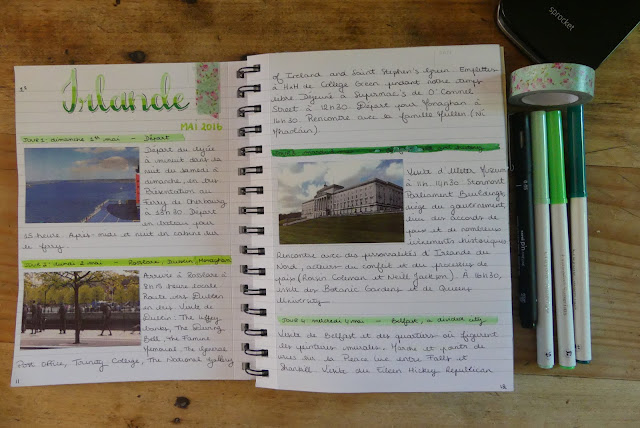 Irlande
MAI 2016
Jour 1 : dimanche 1er mai - Départ
Départ du lycée
à minuit dans la
nuit du samedi à
dimanche, en bus
Présentation au
Ferry de Cherbourg
à 13h30 Départ
en bateau pour
15 heures. Après-midi et nuit en cabine sur
le ferry.
Jour 2 : lundi 2 mai - Rosslare, Dublin, Monaghan
Arrivée à Rosslare à
heure locale
Route vers Dublin
en bus. Visite de
Dublin : The Liffey
banks, The
Bell, The Famine
Memorial, The General
Post Office, Trinity College, The National Gallery
11
of Ireland and Saint Stephen's Green. Emplettes
à H&M de College Green pendant notre temps
libre Déjeuner à Supermac's de O'Connel
Street à 12h30. Départ pour Monaghan à
16h30 Rencontre avec la famille Mullen (Ní
Mhaoláin).
Visite d'Ulster Museum
à 11h. 14h30 : Stormont
Parliament Buildings,
siège du gouvernement,
lieu des accords de
paix et de nombreux
évènements historiques.
Rencontre avec des personnalités d'Irlande du
Nord, acteurs du conflit et du processus de
paix (Rosin Coleman et Neill Jackson). A 16h30,
visite des Botanic Gardens et de Queens
University
Jour 4 : mercredi 4 mai - Belfast, a divided city
Visite de Belfast et des quartiers où figurent
les peintures murales. Marche et points de
vues sur la Peace Line entre Falls et
Shankill. Visite du Eileen Hickey Republican
12
sprocket